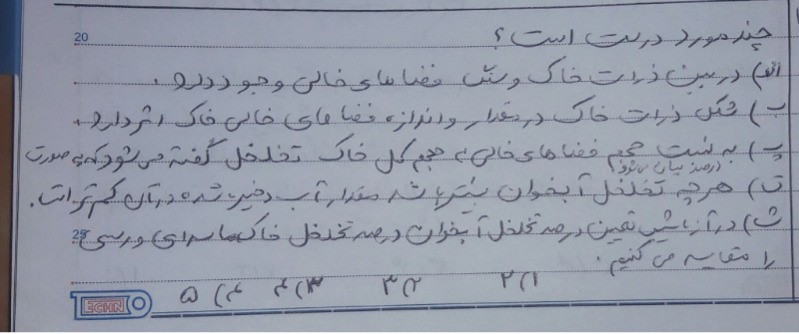 20
چند مورد درست است؟
الف) در بین ذرات خاک و شن فضاهای خالی وجود دارد.
ب) شکل ذرات خاک در مقدار و اندازه فضاهای خالی خاک اثر دارد.
پ) به نسبت حجم فضاهای خالی به حجم کل خاک تخلخل گفته می‌شود که به صورت
درصد بیان می‌شود
ت) هرچه تخلخل آبخوان بیشتر باشد مقدار آب ذخیره شده در آن کم‌تر است.
25
ث) در آزمایش تعیین درصد تخلخل آبخوان درصد تخلخل خاک ماسه‌ای و رسی
را مقایسه می‌کنیم.
۱) ۲ ۲) ۳ ۳) ۴ ۴) ۵
ECHN